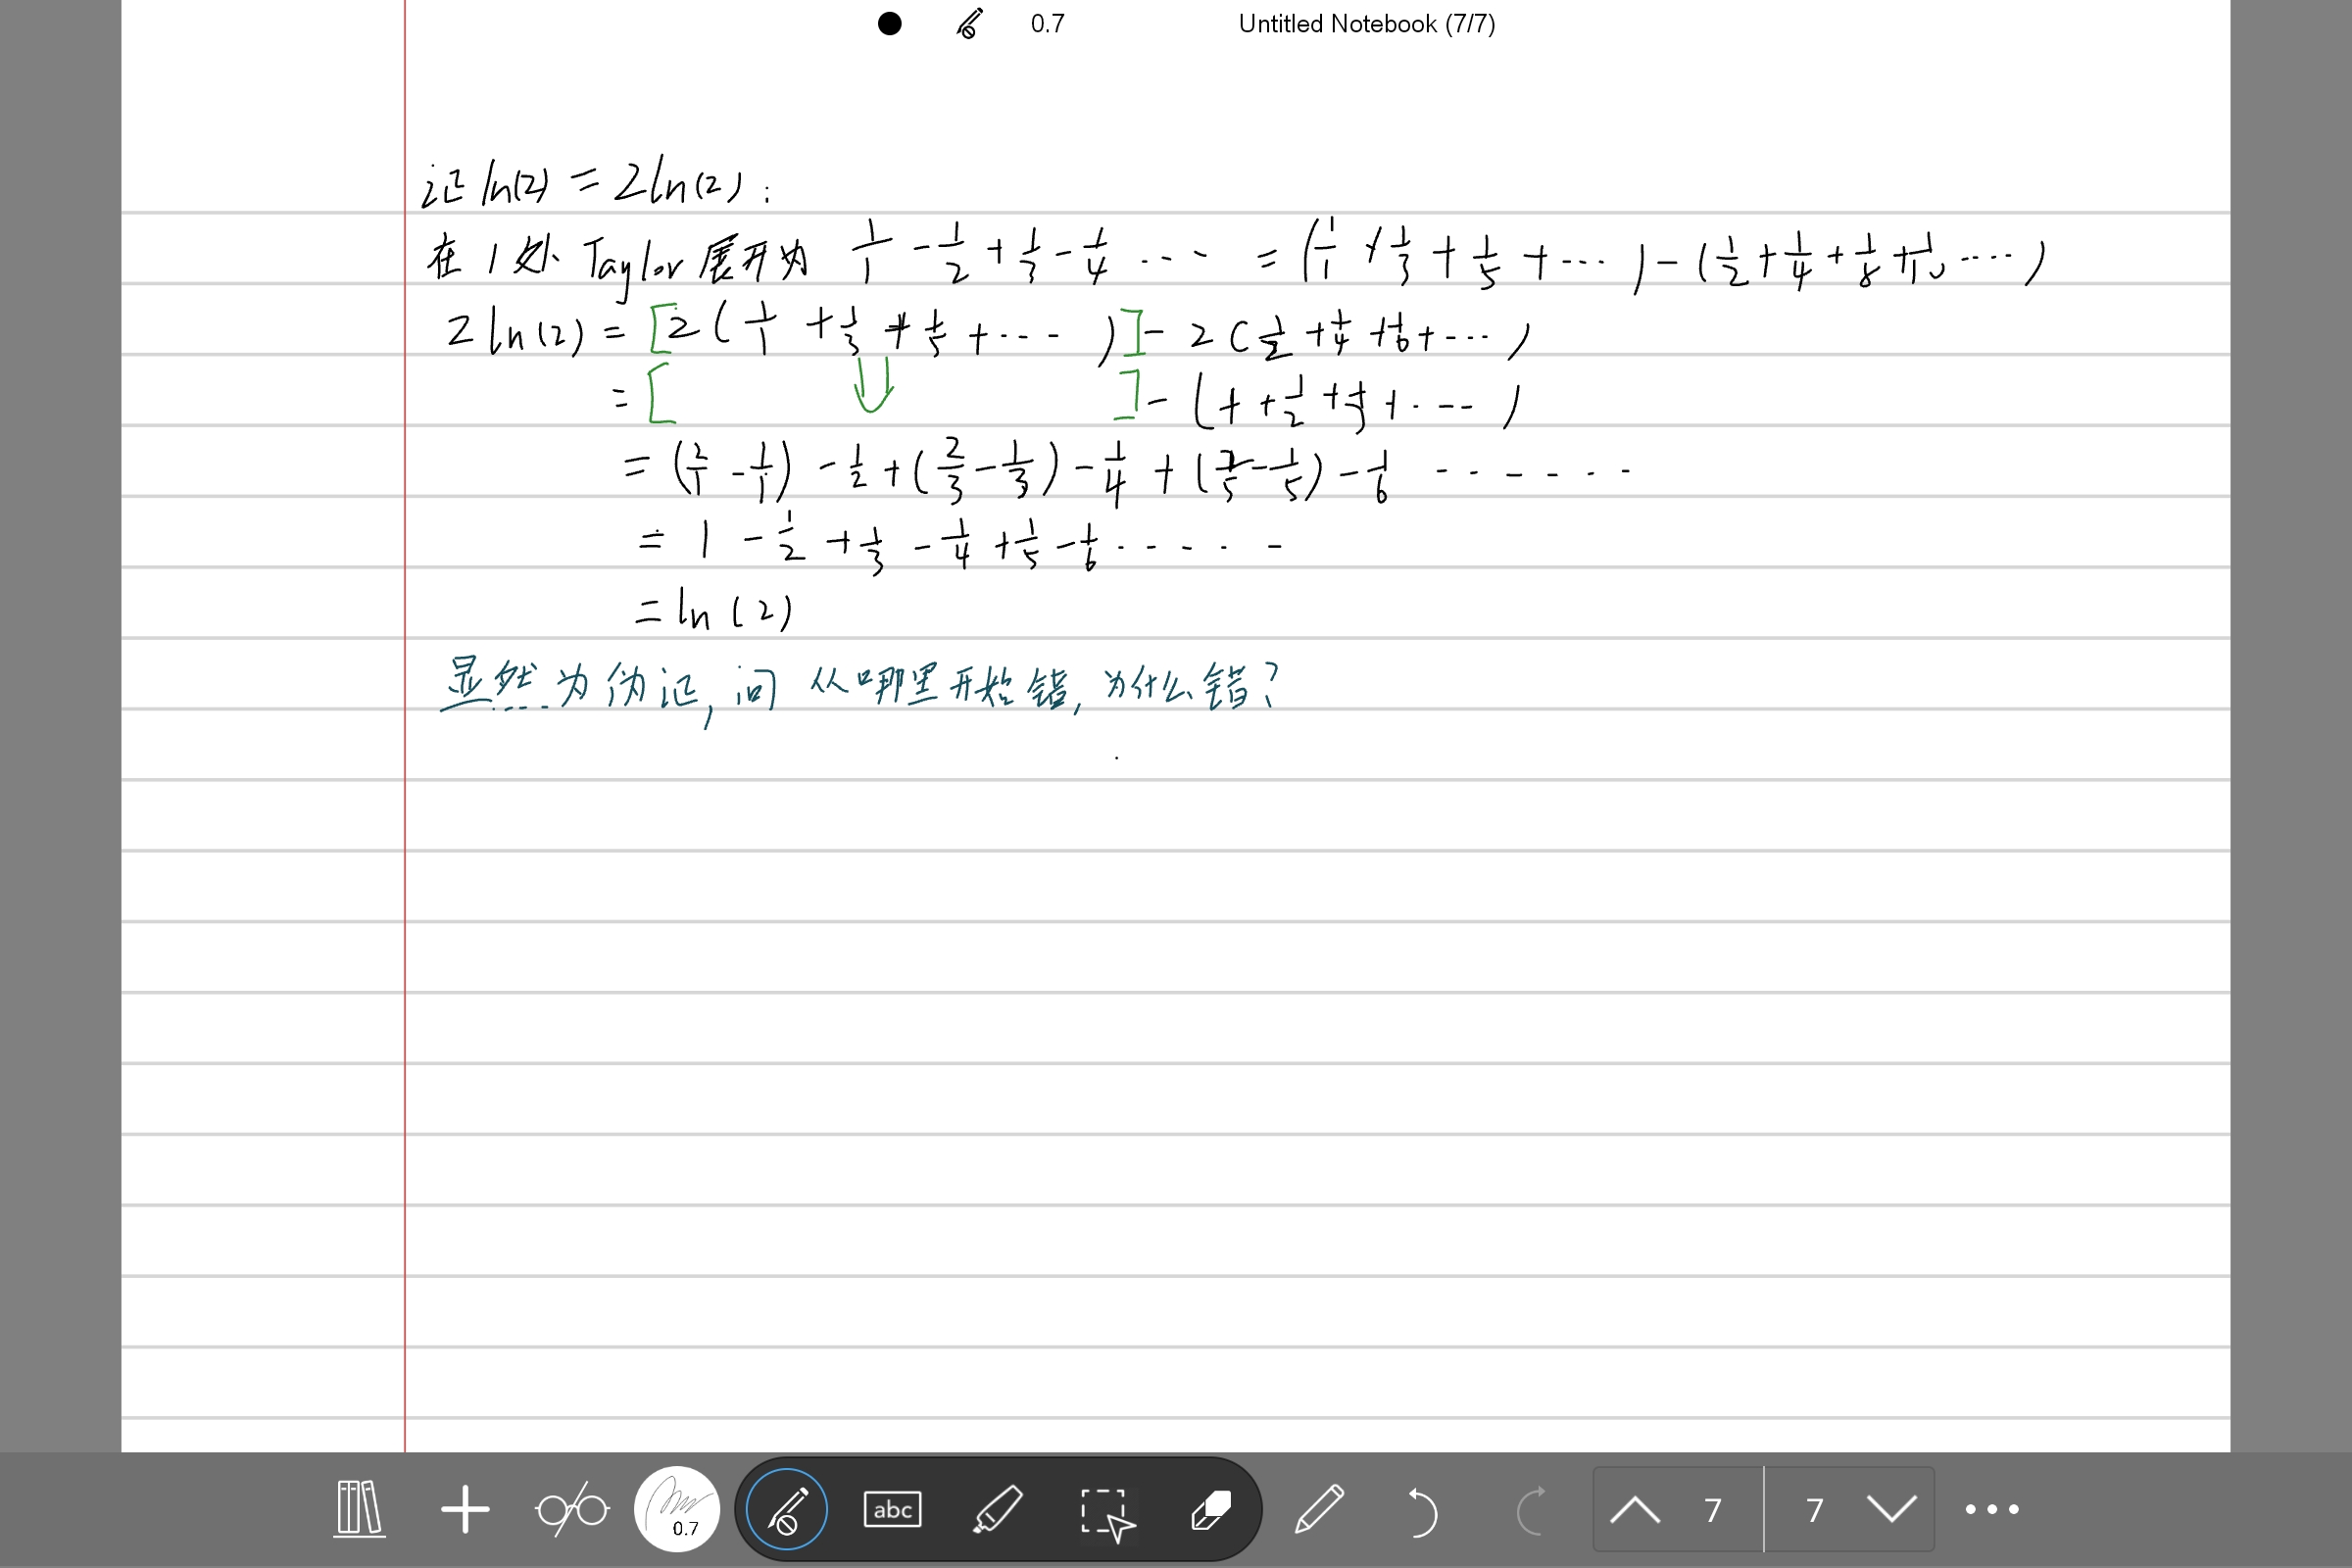 0.7 Untitled Notebook (7/7)
证 ln(2) = 2ln(2) :
在 1 处 Taylor 展开为 1/1 - 1/2 + 1/3 - 1/4 ... = (1/1 + 1/3 + 1/5 + ...) - (1/2 + 1/4 + 1/8 + 1/10 ....)
2 ln(2) = [2(1/1 + 1/3 + 1/5 + ...)] - 2(1/2 + 1/4 + 1/6 + ...)
= [ ⇓ ] - (1 + 1/2 + 1/3 + ...)
= (2/1 - 1/1) - 1/2 + (2/3 - 1/3) - 1/4 + (2/5 - 1/5) - 1/6 .......
= 1 - 1/2 + 1/3 - 1/4 + 1/5 - 1/6 .....
= ln(2)
显然为伪证, 问从哪里开始错, 为什么错?
0.7 abc 7 7